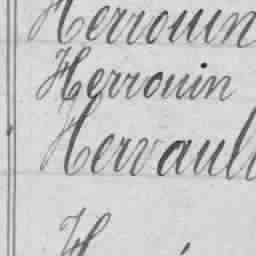 Herrouin
Herrouin
Hervault